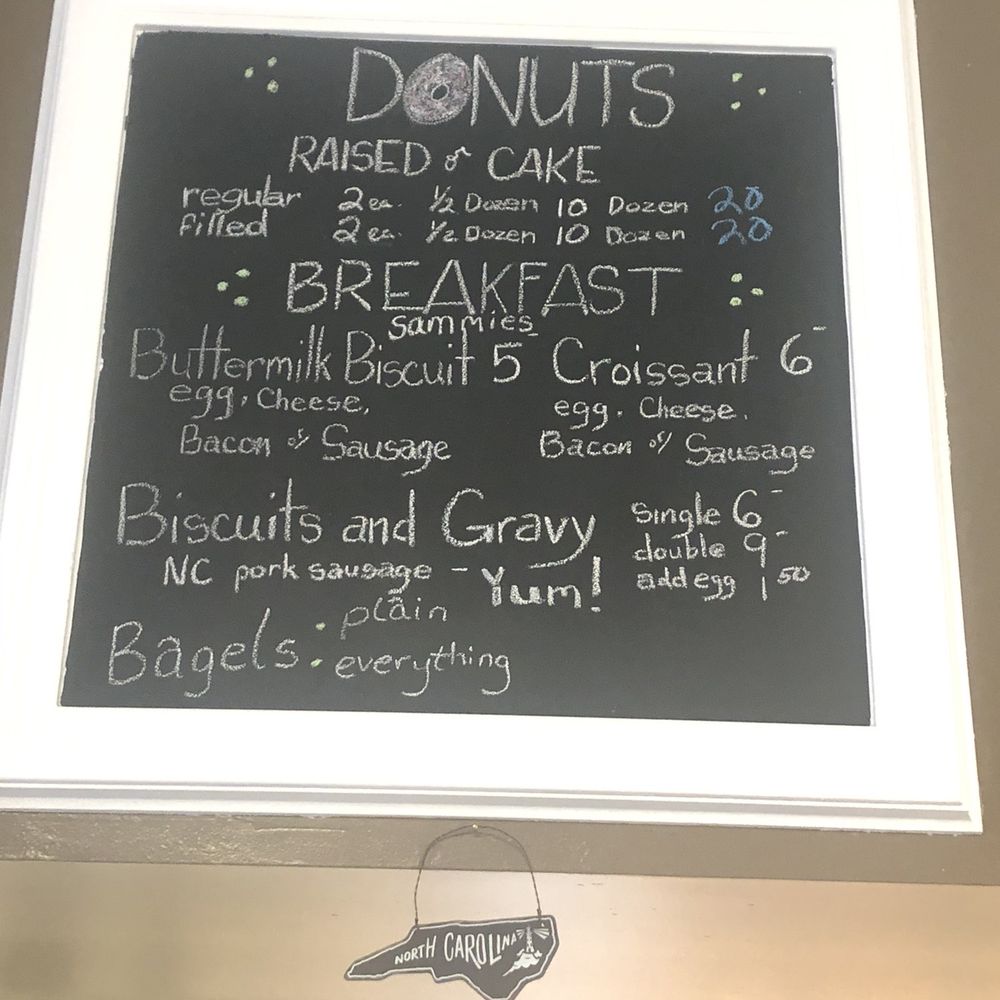 DONUTS
RAISED or CAKE
regular 2 ea. 1/2 Dozen 10 Dozen 20
filled 2 ea. 1/2 Dozen 10 Dozen 20
BREAKFAST
sammies
Buttermilk Biscuit 5- Croissant 6-
egg, Cheese, egg, Cheese,
Bacon or Sausage Bacon or Sausage
Biscuits and Gravy single 6-
double 9-
NC pork sausage - Yum! add egg 1 50
Bagels • plain
• everything
NORTH CAROLINA